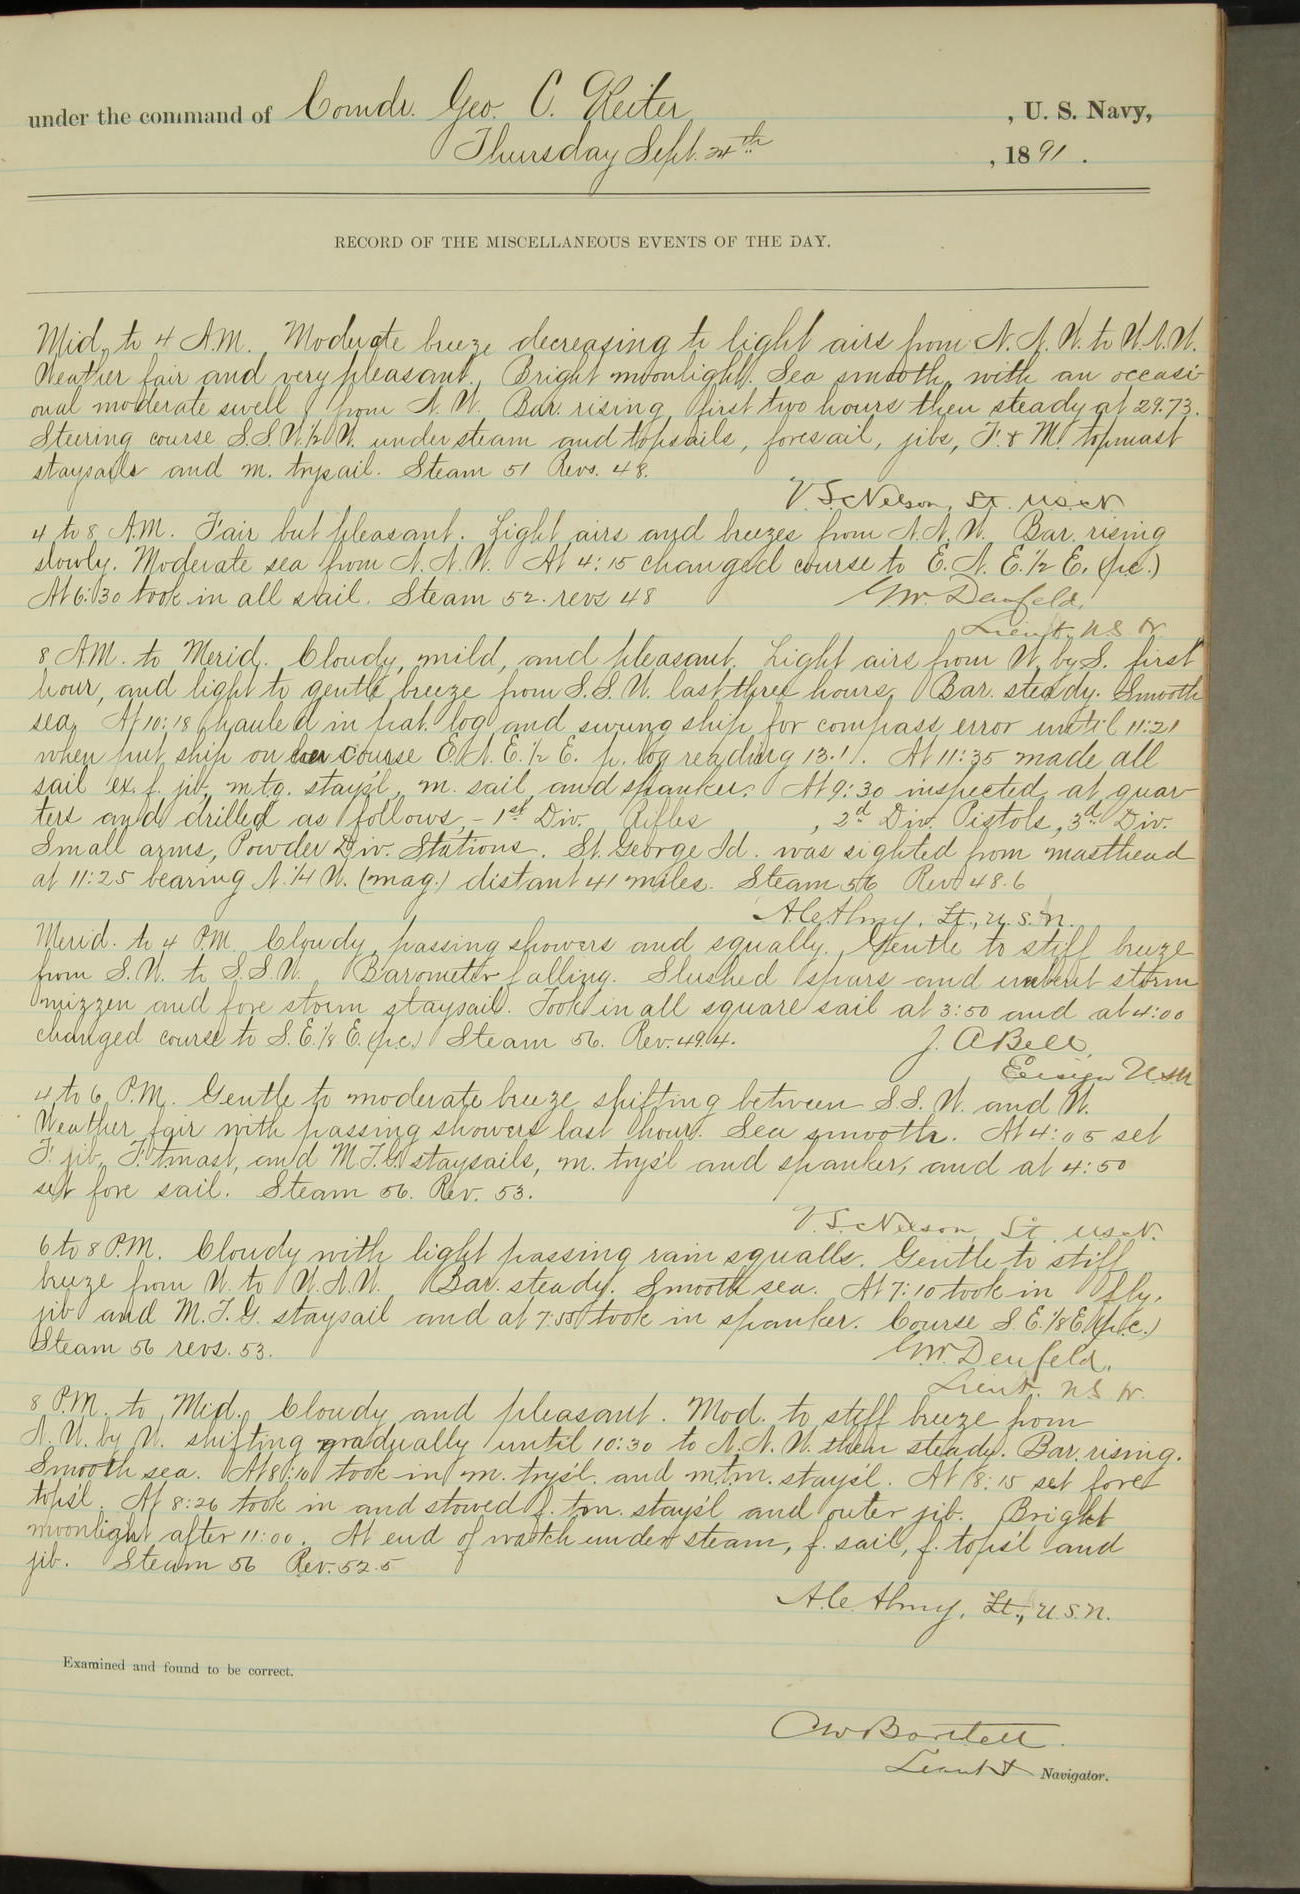 under the command of Comdr. Geo. C. Reiter, U. S. Navy,
Thursday Sept. 24th, 1891.
RECORD OF THE MISCELLANEOUS EVENTS OF THE DAY.
Mid. to 4 A.M. Moderate breeze decreasing to light airs from N. N. W. to W. N. W.
Weather fair and very pleasant. Bright moonlight. Sea smooth, with an occasi-
onal moderate swell from N. W. Bar. rising first two hours then steady at 29.73.
Steering course S. S. W. 1/2 W. under steam and topsails, foresail, jibs, F. & M. topmast
staysails and m. trysail. Steam 51 Revs. 48.
V. S. Nelson, Lt. U.S.N
4 to 8 A.M. Fair but pleasant. Light airs and breezes from N. N. W. Bar. rising
slowly. Moderate sea from N. N. W. At 4:15 changed course to E. N. E. 1/2 E. (p.c.)
At 6:30 took in all sail. Steam 52. revs 48
G W. Denfeld,
Lieut. U.S. N.
8 AM. to Merid. Cloudy, mild, and pleasant. Light airs from W. by S. first
hour, and light to gentle breeze from S. S. W. last three hours. Bar. steady. Smooth
sea. At 10:18 hauled in pat. log and swung ship for compass error until 11:21
when put ship on her course E. N. E. 1/2 E. p. log reading 13.1. At 11:35 made all
sail ex. f. jib, m.t.g. stays'l, m. sail, and spanker. At 9:30 inspected at quar-
ters and drilled as follows, - 1st Div. Rifles , 2d Div. Pistols, 3d Div.
Small arms, Powder Div. Stations. St. George Id. was sighted from masthead
at 11:25 bearing N. 1/4 W. (mag.) distant 41 miles. Steam 56 Rev. 48.6
A. C. Almy, Lt., U.S.N.
Merid. to 4 P.M. Cloudy, passing showers and squally. Gentle to stiff breeze
from S. W. to S. S. W. Barometer falling. Slushed spars and unbent storm
mizzen and fore storm staysail. Took in all square sail at 3:50 and at 4:00
changed course to S. E. 1/8 E. (p.c.) Steam 56. Rev. 49.4.
J. A Bell,
Ensign U.S.N
4 to 6 P.M. Gentle to moderate breeze shifting between S. S. W. and W.
Weather fair with passing showers last hour. Sea smooth. At 4:05 set
F. jib, F. tmast, and M T. G. staysails, m. trys'l and spanker, and at 4:50
set fore sail. Steam 56. Rev. 53.
V. S. Nelson, Lt. U.S.N.
6 to 8 P.M. Cloudy with light passing rain squalls. Gentle to stiff
breeze from W. to W. N. W. Bar. steady. Smooth sea. At 7:10 took in fly.
jib and M. T. G. staysail and at 7:55 took in spanker. Course S. E. 1/8 E (p.c.)
Steam 56 revs. 53.
G W. Denfeld.
Lieut. U.S. N.
8 P.M. to Mid. Cloudy and pleasant. Mod. to stiff breeze from
N. W. by W. shifting gradually until 10:30 to N. N. W. then steady. Bar. rising.
Smooth sea. At 8:10 took in m. trys'l. and m.t.m. stays'l. At 8:15 set fore
tops'l. At 8:26 took in and stowed f. tm. stays'l and outer jib. Bright
moonlight after 11:00. At end of watch under steam, f. sail, f. tops'l and
jib. Steam 56 Rev. 52.5
A. C. Almy, Lt., U.S.N.
Examined and found to be correct.
C W Bartlett.
Lieut Navigator.